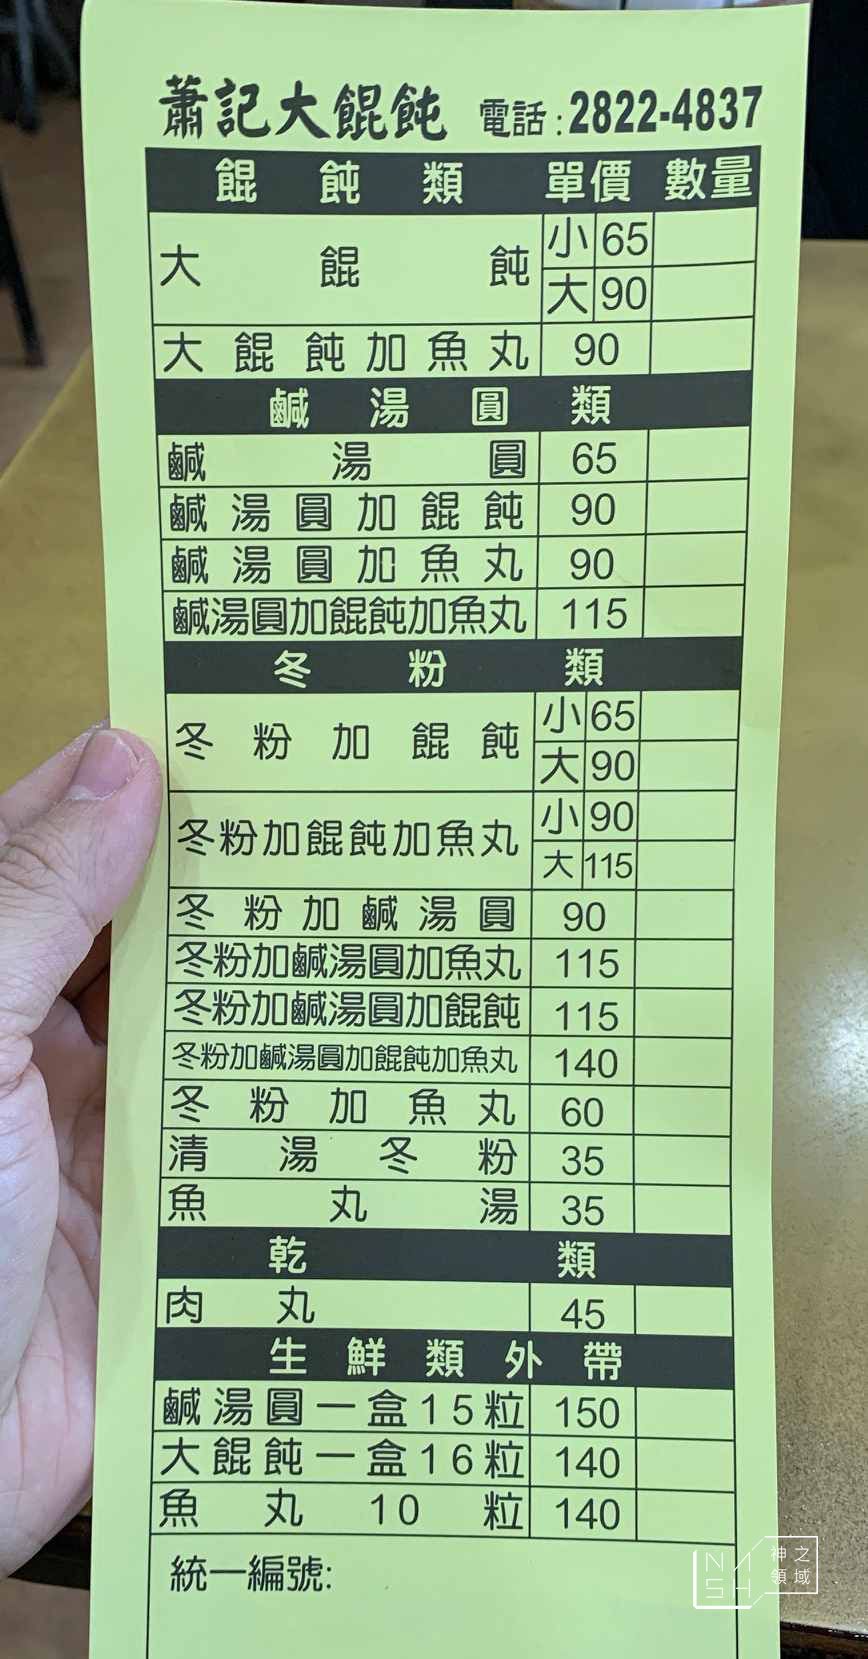 蕭記大餛飩 電話:2822-4837
餛飩類 單價 數量
大餛飩 小 65
大 90
大餛飩加魚丸 90
鹹湯圓類
鹹湯圓 65
鹹湯圓加餛飩 90
鹹湯圓加魚丸 90
鹹湯圓加餛飩加魚丸 115
冬粉類
冬粉加餛飩 小 65
大 90
冬粉加餛飩加魚丸 小 90
大 115
冬粉加鹹湯圓 90
冬粉加鹹湯圓加魚丸 115
冬粉加鹹湯圓加餛飩 115
冬粉加鹹湯圓加餛飩加魚丸 140
冬粉加魚丸 60
清湯冬粉 35
魚丸湯 35
乾類
肉丸 45
生鮮類外帶
鹹湯圓一盒15粒 150
大餛飩一盒16粒 140
魚丸10粒 140
統一編號:
NASH 神之領域